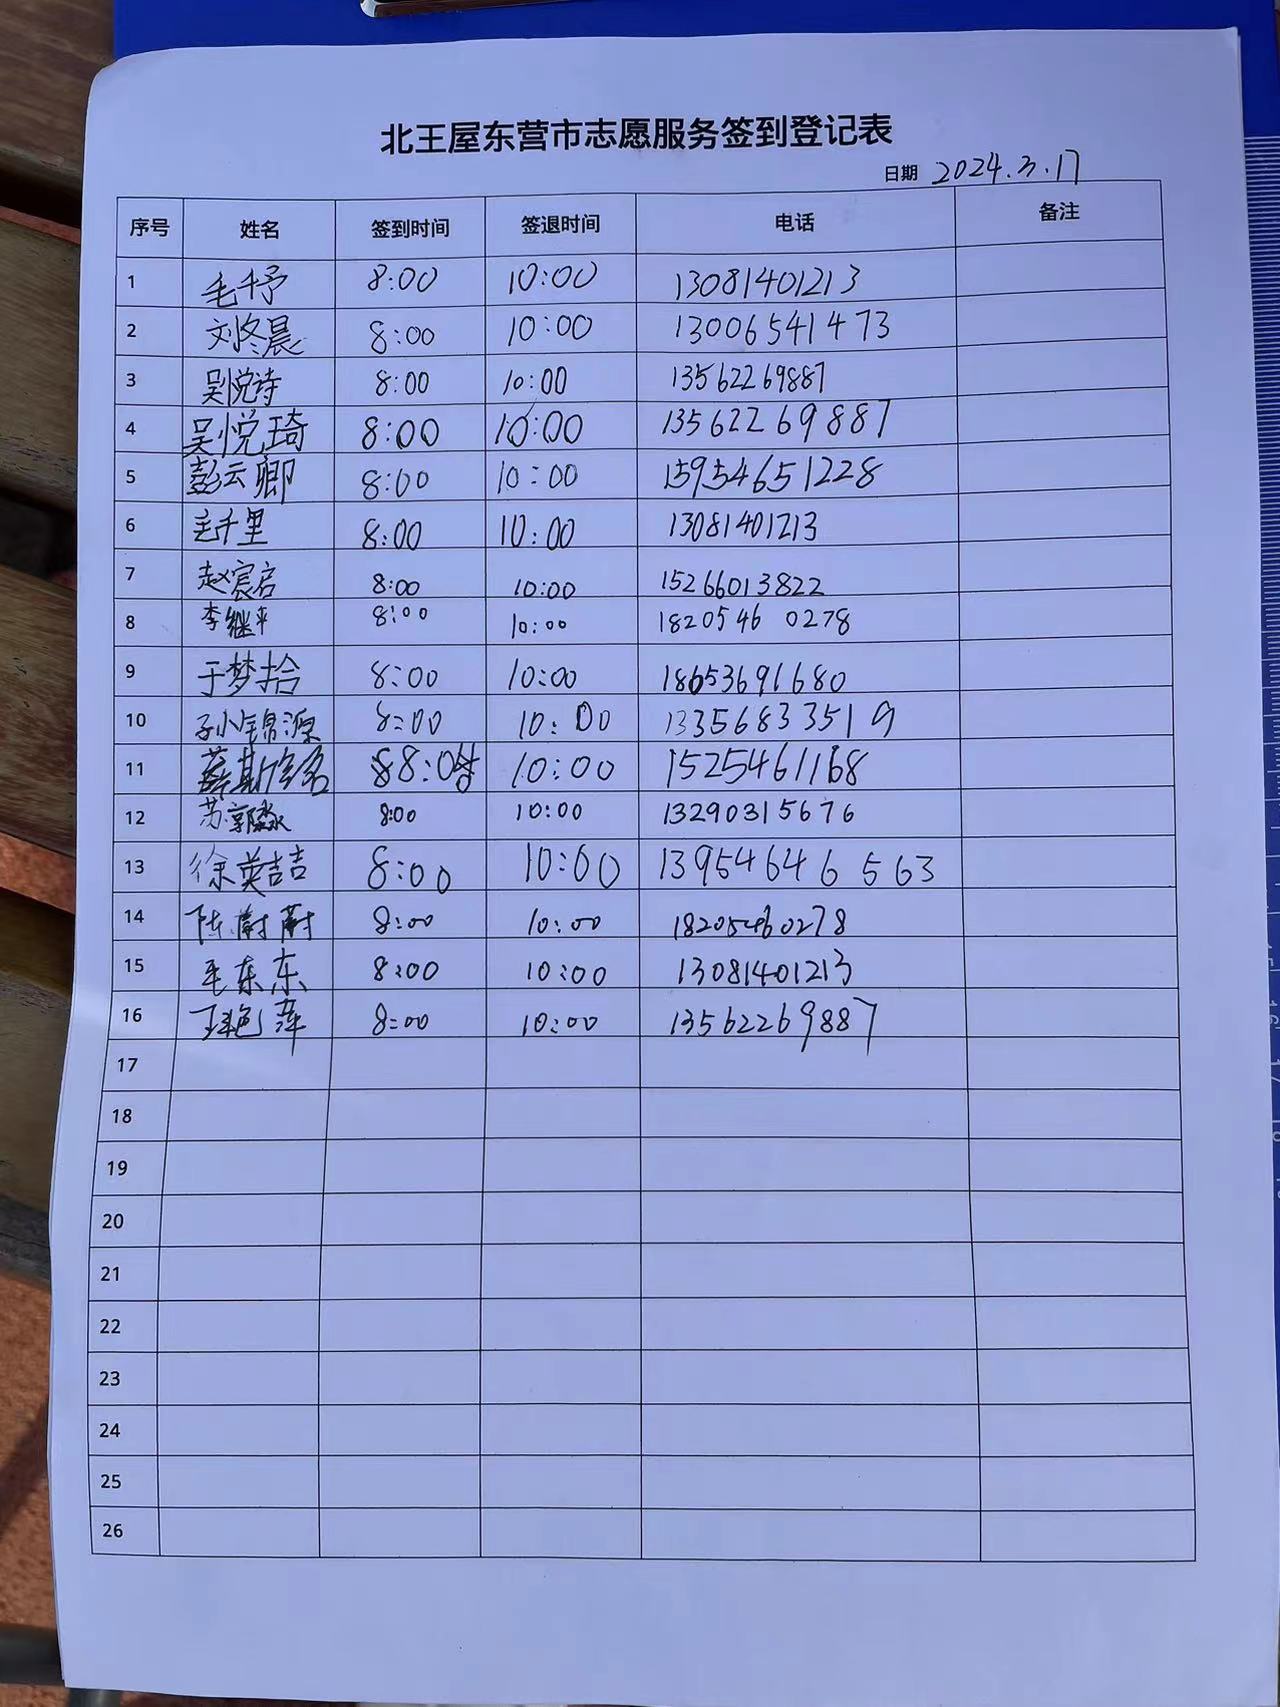 北王屋东营市志愿服务签到登记表
日期 2024.3.17
序号 姓名 签到时间 签退时间 电话 备注
1 毛千予 8:00 10:00 13081401213
2 刘冬晨 8:00 10:00 13006541473
3 吴悦诗 8:00 10:00 13562269887
4 吴悦琦 8:00 10:00 13562269887
5 彭云卿 8:00 10:00 15954651228
6 毛千里 8:00 10:00 13081401213
7 赵宸启 8:00 10:00 15266013822
8 李继平 8:00 10:00 18205460278
9 于梦拾 8:00 10:00 18653691680
10 孙小锦源 8:00 10:00 13356833519
11 薛斯 10:00 15254461168
12 苏 8:00 10:00 13290315676
13 徐英喆 8:00 10:00 13954646563
14 陈蔚蔚 8:00 10:00 18205460278
15 毛东东 8:00 10:00 13081401213
16 王艳萍 8:00 10:00 13562269887
17
18
19
20
21
22
23
24
25
26